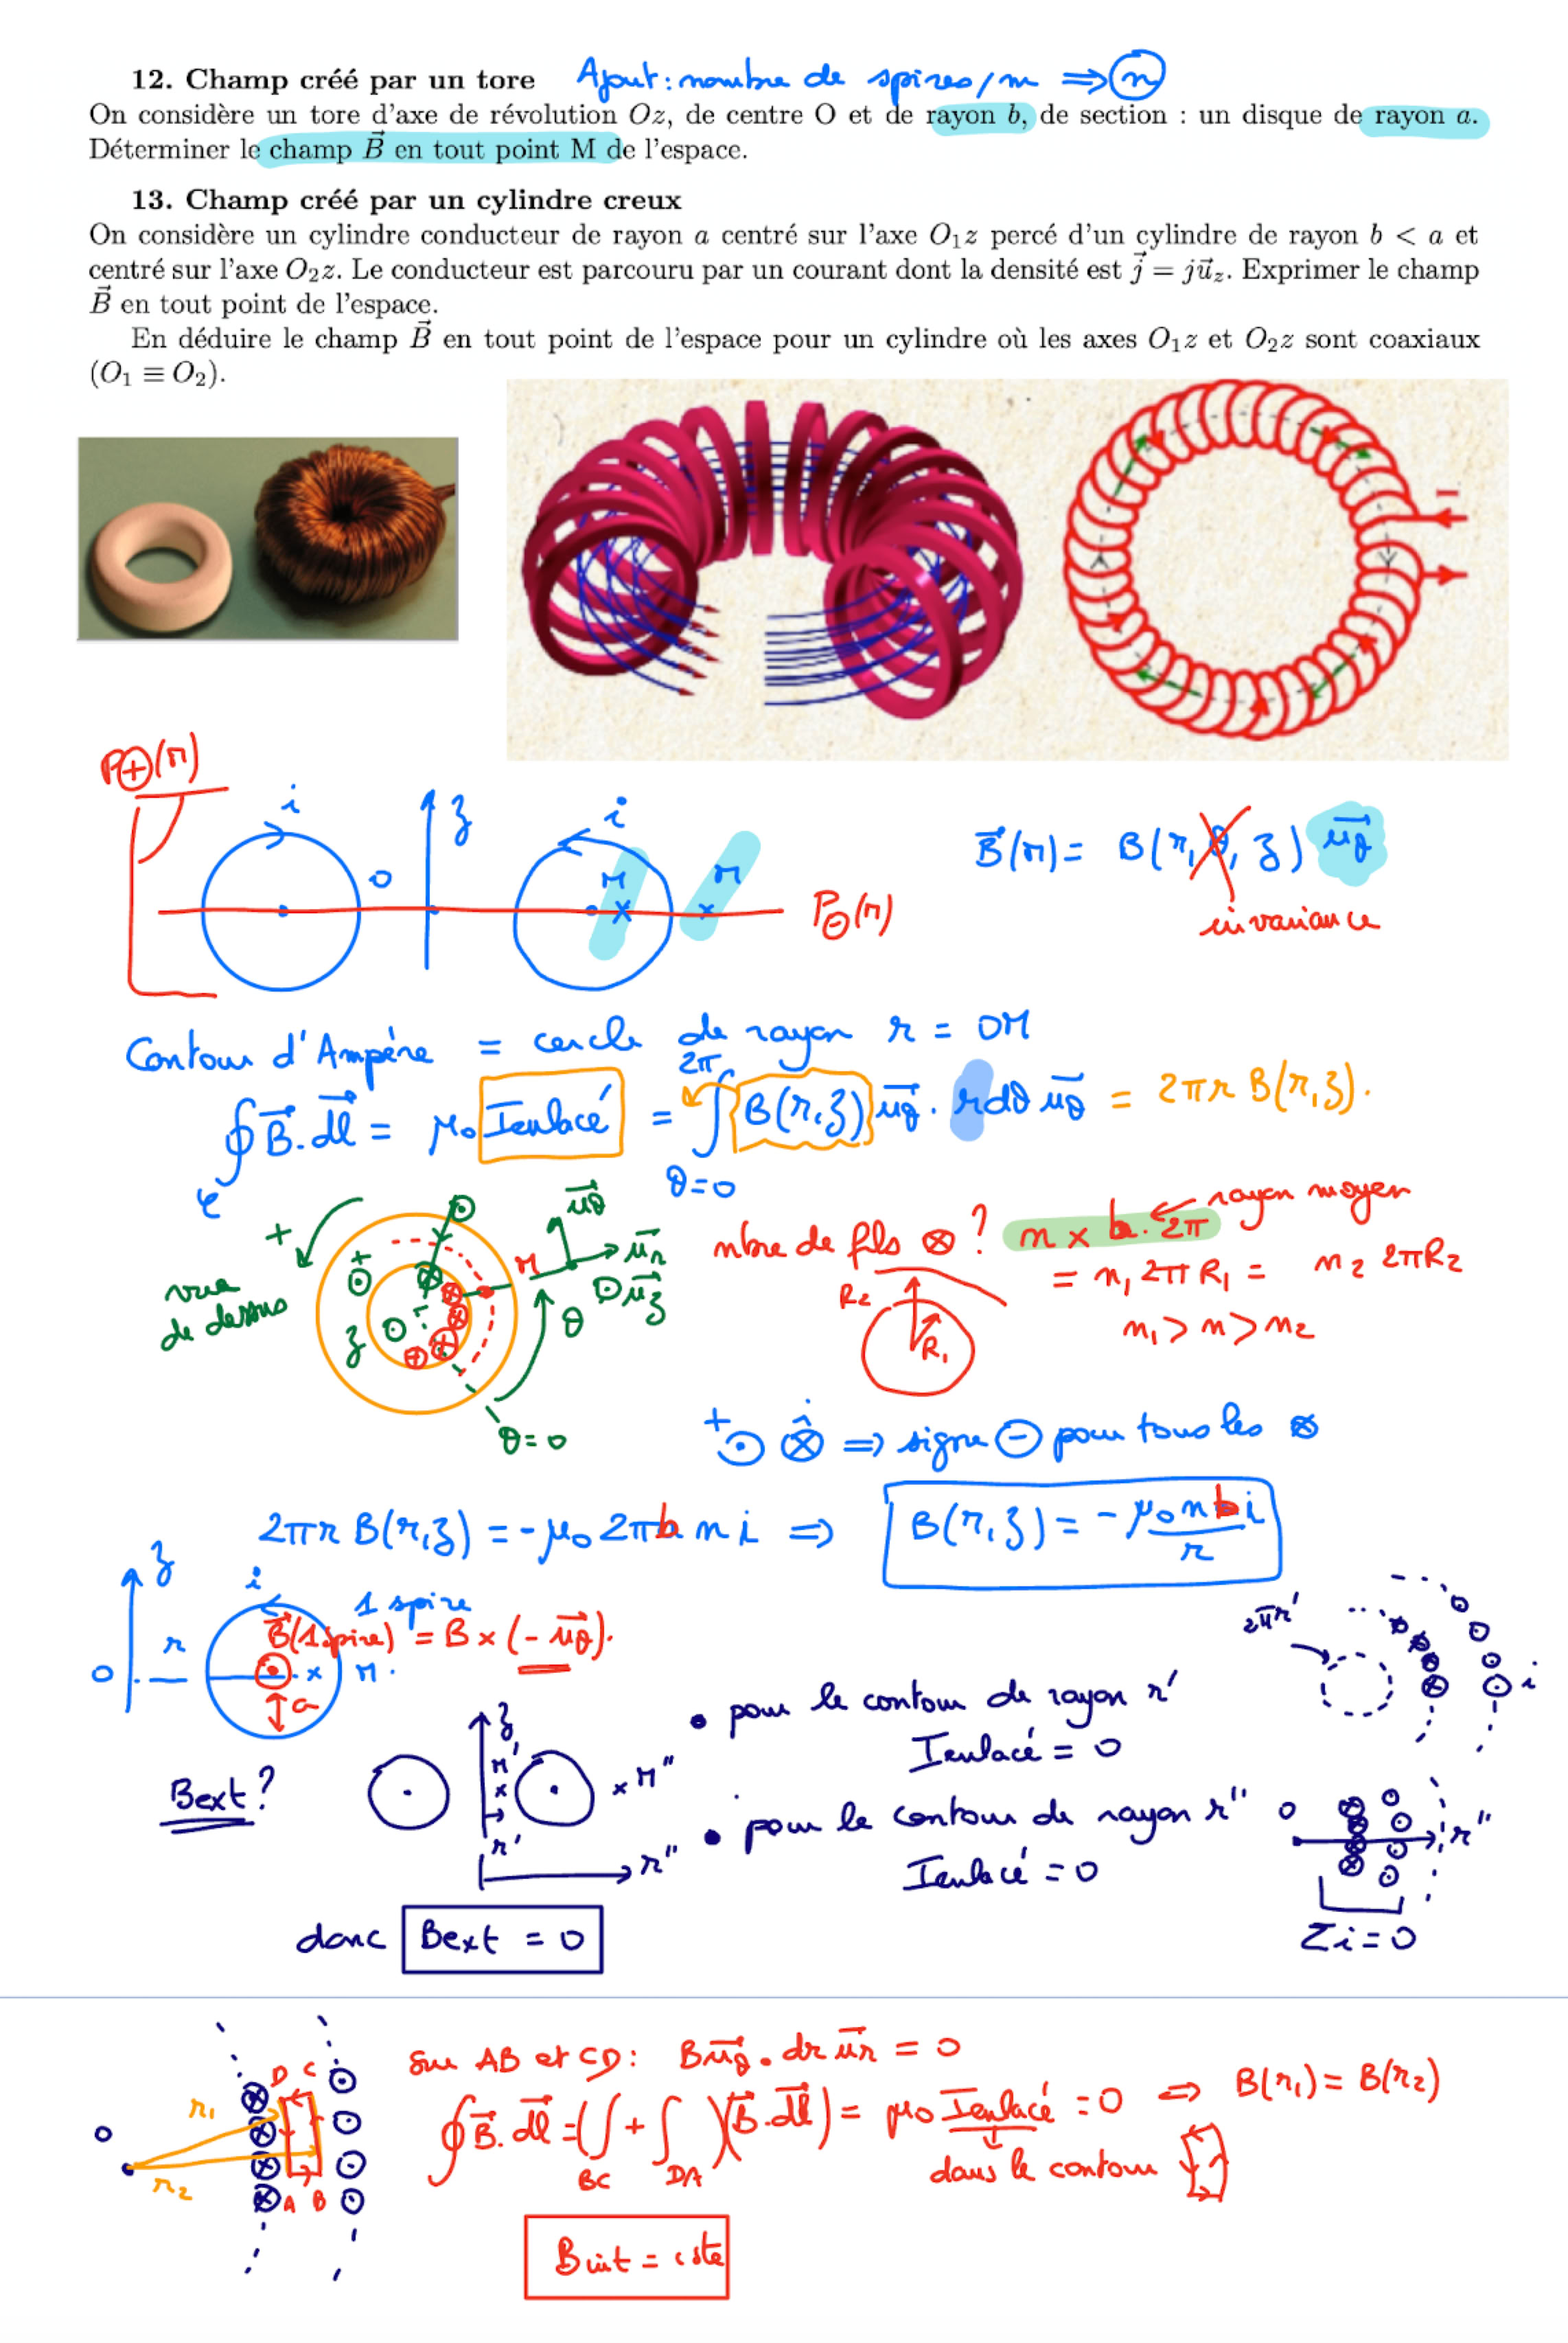 12. Champ créé par un tore Ajout : nombre de spires/m ⇒ n
On considère un tore d'axe de révolution Oz, de centre O et de rayon b, de section : un disque de rayon a.
Déterminer le champ B⃗ en tout point M de l'espace.
13. Champ créé par un cylindre creux
On considère un cylindre conducteur de rayon a centré sur l'axe O₁z percé d'un cylindre de rayon b < a et
centré sur l'axe O₂z. Le conducteur est parcouru par un courant dont la densité est j⃗ = ju⃗z. Exprimer le champ
B⃗ en tout point de l'espace.
En déduire le champ B⃗ en tout point de l'espace pour un cylindre où les axes O₁z et O₂z sont coaxiaux
(O₁ ≡ O₂).
P⊕(M)
i z i
O M M P⊖(M)
B⃗(M) = B(r, θ, z) u⃗θ
invariance
Contour d'Ampère = cercle de rayon r = OM
∮ B⃗.dl⃗ = μ₀ Ienlacé = ∫ B(r,z) u⃗θ . r dθ u⃗θ = 2πr B(r,z).
C θ=0 2π
+ vue de dessus
z O M u⃗θ u⃗r u⃗z θ
θ=0
nbre de fils ⊗ ? n × b. 2π ← rayon moyen
= n₁ 2π R₁ = n₂ 2πR₂
R₂ R₁ n₁ > n > n₂
+ ⊙ ⊗ i ⇒ signe ⊖ pour tous les ⊗
2πr B(r,z) = -μ₀ 2πb n i ⇒ B(r,z) = - μ₀ n b i / r
z i 1 spire
B⃗(1 spire) = B × (-u⃗θ).
O r M a
2πr' i
Bext ?
z M' M'' r' r''
• pour le contour de rayon r'
Ienlacé = 0
• pour le contour de rayon r''
Ienlacé = 0
O r''
Σi = 0
donc Bext = 0
D C
r₁ r₂ O
A B
sur AB et CD : B u⃗θ . dr u⃗r = 0
∮ B⃗.dl⃗ = (∫ + ∫)(B⃗.dl⃗) = μ₀ Ienlacé = 0 ⇒ B(r₁) = B(r₂)
BC DA dans le contour
Bint = cste